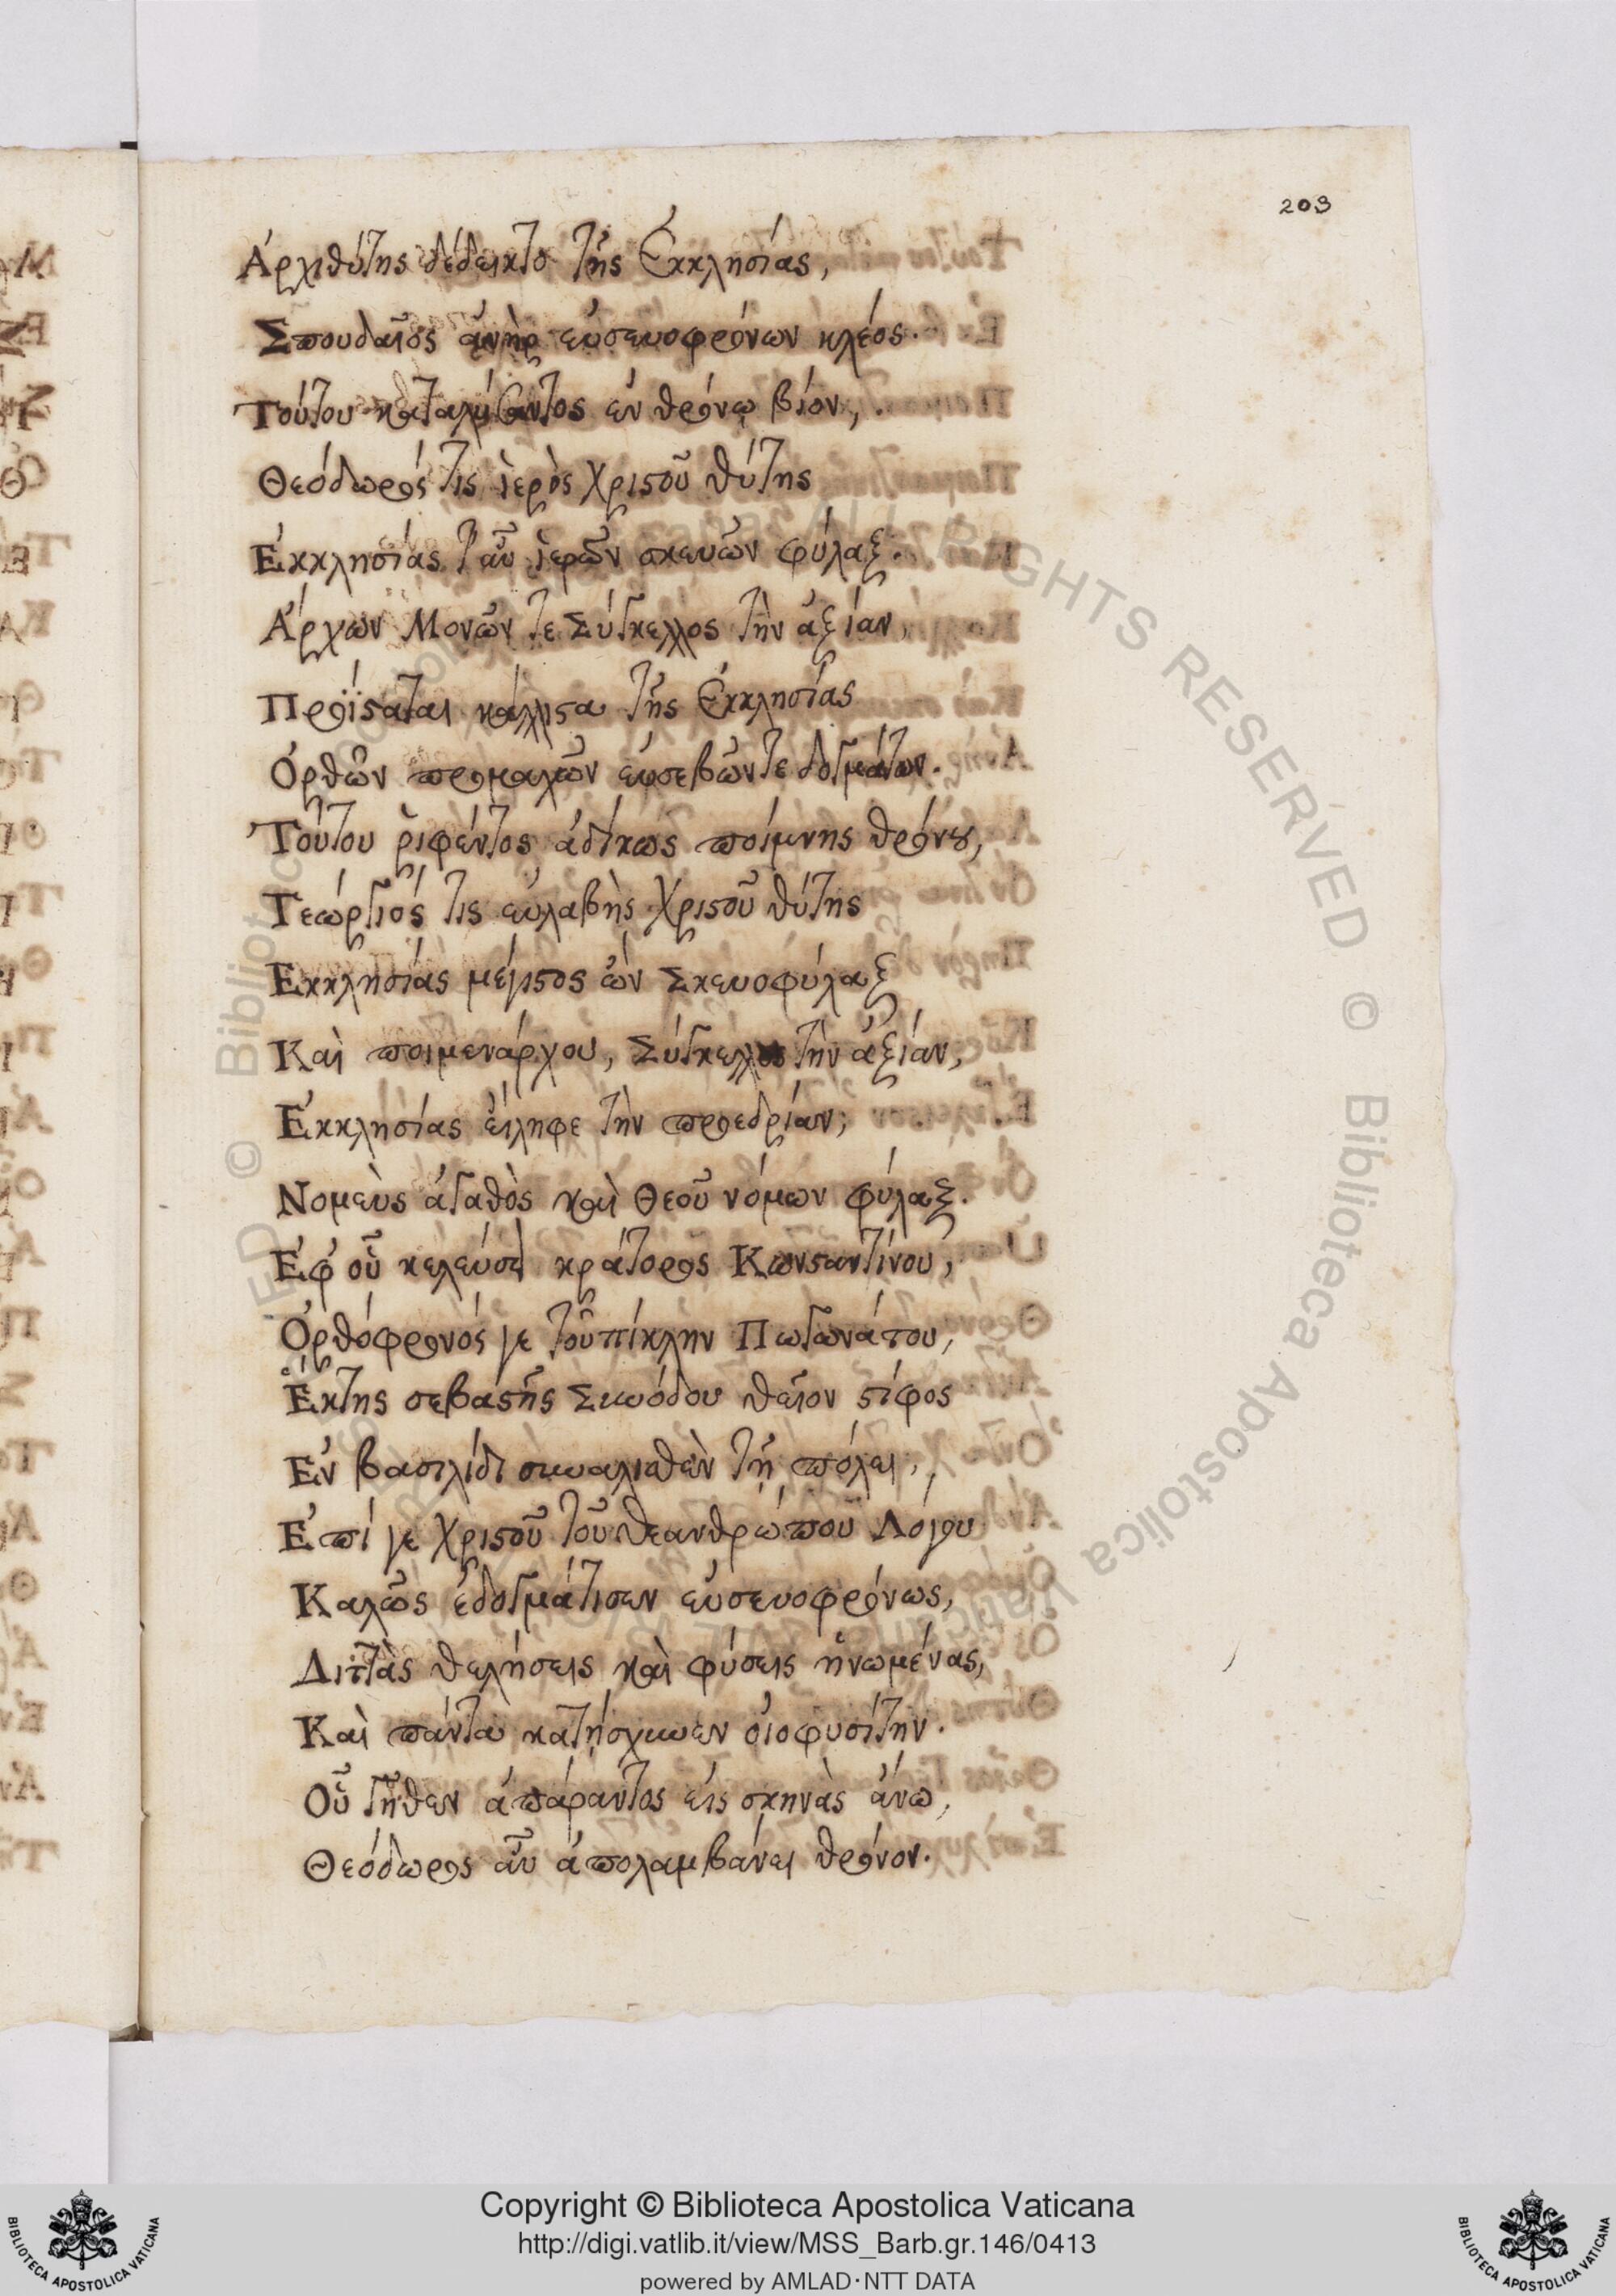 203
Ἀρχιθύτης δέδεικτο τῆς Ἐκκλησίας,
Σπουδαῖος ἀνὴρ εὐσευοφρόνων κλέος.
Τούτου καταλύσαντος ἐν θρόνῳ βίον,
Θεόδωρός τις ἱερὸς Χριστοῦ θύτης
Ἐκκλησίας τ' αὖ ἱερῶν σκευῶν φύλαξ.
Ἄρχων Μονῶν τε Σύγκελλος τὴν ἀξίαν,
Προΐσταται κάλλιστα τῆς Ἐκκλησίας
Ὀρθῶν προμαχῶν εὐσεβῶν τε δογμάτων.
Τούτου ῥιφέντος ἀδίκως ποίμνης θρόνου,
Γεώργιός τις εὐλαβὴς Χριστοῦ θύτης
Ἐκκλησίας μέγιστος ὢν Σκευοφύλαξ
Καὶ ποιμενάρχου, Σύγκελλος τὴν ἀξίαν,
Ἐκκλησίας εἴληφε τὴν προεδρίαν,
Νομεὺς ἀγαθὸς καὶ Θεοῦ νόμων φύλαξ.
Ἐφ' οὗ κελεύσει κράτορος Κωνσταντίνου,
Ὀρθόφρονός γε τοὐπίκλην Πωγωνάτου,
Ἕκτης σεβαστῆς Συνόδου θεῖον στίφος
Ἐν βασιλίδι συναλισθὲν τῇ πόλει,
Ἐπί γε Χριστοῦ τοῦ θεανθρώπου Λόγου
Καλῶς ἐδογμάτισεν εὐσευοφρόνως,
Διττὰς θελήσεις καὶ φύσεις ἡνωμένας,
Καὶ πάντα κατῄσχυνεν οἰοφυσίτην.
Οὗ γῆθεν ἀπάραντος εἰς σκηνὰς ἄνω,
Θεόδωρος αὖ ἀπολαμβάνει θρόνον.
Copyright © Biblioteca Apostolica Vaticana
http://digi.vatlib.it/view/MSS_Barb.gr.146/0413
powered by AMLAD·NTT DATA